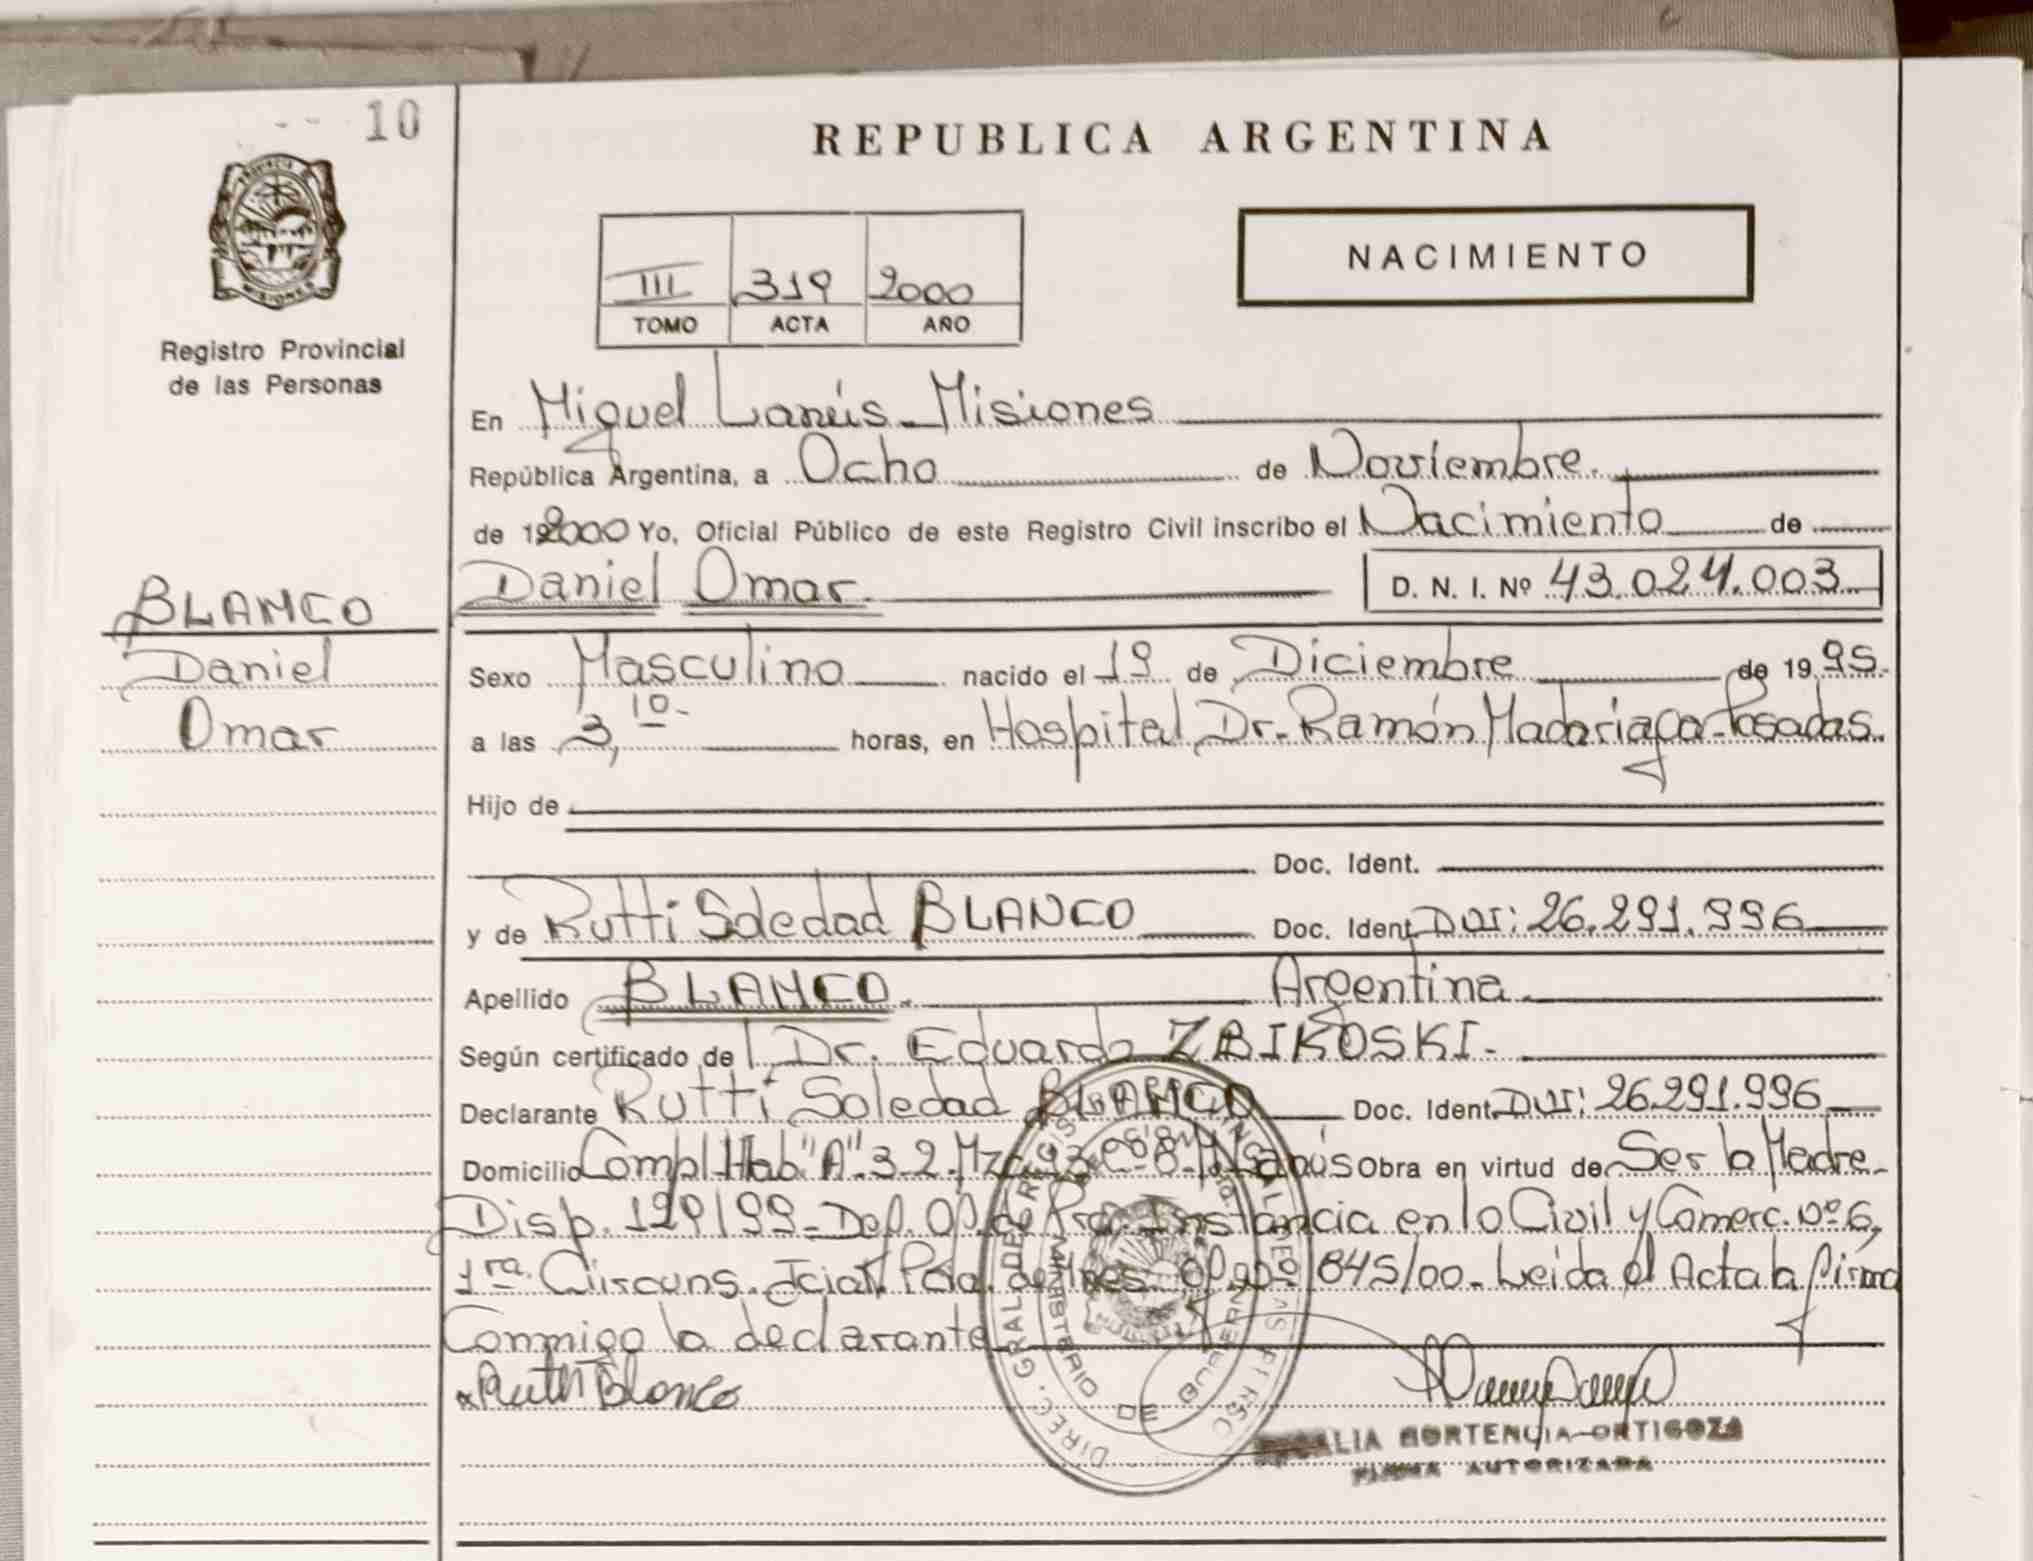 10
PROVINCIA DE
MISIONES
Registro Provincial
de las Personas
BLANCO
Daniel
Omar
REPUBLICA ARGENTINA
NACIMIENTO
III 319 2000
TOMO ACTA AÑO
En Miguel Lanús - Misiones
República Argentina, a Ocho de Noviembre.
de 192000 Yo, Oficial Público de este Registro Civil inscribo el Nacimiento de
Daniel Omar. D. N. I. Nº 43.024.003
Sexo Masculino nacido el 19 de Diciembre de 1995.
a las 3,10- horas, en Hospital Dr. Ramón Madariaga-Posadas.
Hijo de
Doc. Ident.
y de Rutti Soledad BLANCO Doc. Ident. DNI: 26.291.996
Apellido BLANCO. Argentina.
Según certificado de l Dr. Eduardo ZBIKOSKI.
Declarante Rutti Soledad BLANCO Doc. Ident. DNI: 26.291.996
Domicilio Compl. Hab "A" 3-2. Lanús Obra en virtud de Ser la Madre-
Disp. 129/99-Dep. Instancia en lo Civil y Comerc. Nº 6,
1ra. Circuns. Jcial. Pcia. de Mnes. 845/00. Leída el Acta la firma
Conmigo la declarante
Ruth Blanco
DIREC. GRAL DEL REGIS PROVINCIAL DE LAS PERSO
MINISTERIO DE GOBIERNO
ALIA HORTENCIA ORTIGOZA
FIRMA AUTORIZADA